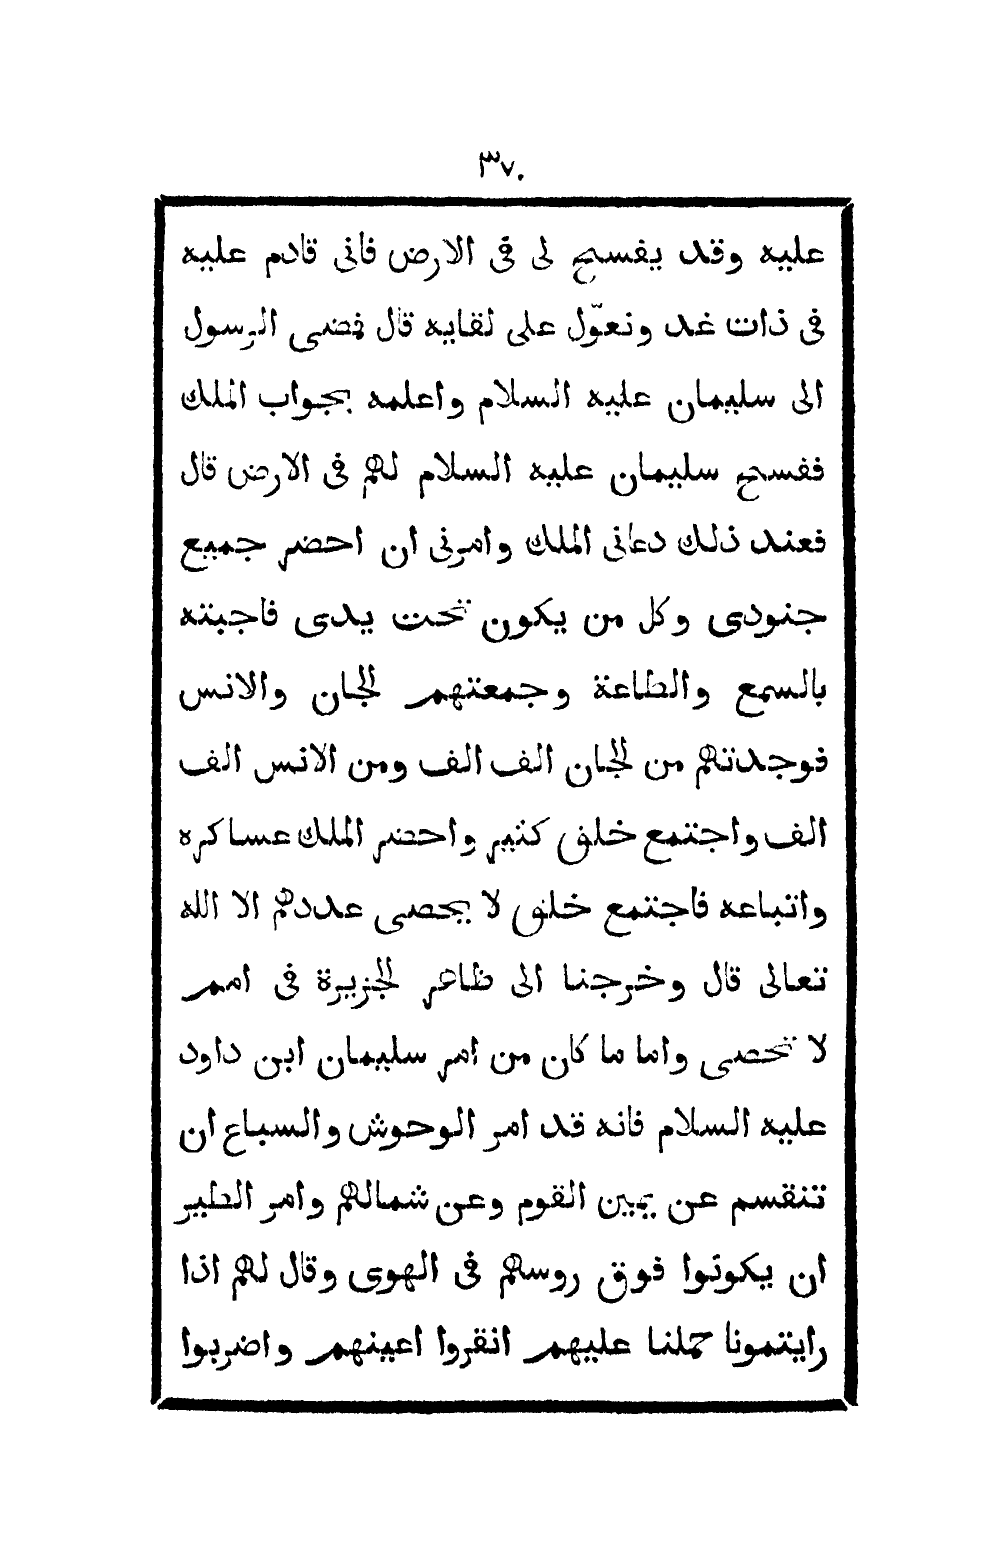 ٣٧٠
عليه وقد يفسح لى فى الارض فانى قادم عليه
فى ذات غد ونعوّل على لقايه قال فمضى الرسول
الى سليمان عليه السلام واعلمه بجواب الملك
ففسح سليمان عليه السلام لهم فى الارض قال
فعند ذلك دعانى الملك وامرنى ان احضر جميع
جنودى وكل من يكون تحت يدى فاجبته
بالسمع والطاعة وجمعتهم الجان والانس
فوجدتهم من الجان الف الف ومن الانس الف
الف واجتمع خلق كثير واحضر الملك عساكره
واتباعه فاجتمع خلق لا يحصى عددهم الا الله
تعالى قال وخرجنا الى ظاهر الجزيرة فى امم
لا تحصى واما ما كان من امر سليمان ابن داود
عليه السلام فانه قد امر الوحوش والسباع ان
تنقسم عن يمين القوم وعن شمالهم وامر الطير
ان يكونوا فوق روسهم فى الهوى وقال لهم اذا
رايتمونا حملنا عليهم انقروا اعينهم واضربوا